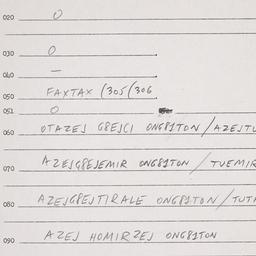 020 O
030 O
040 —
050 FAXTAX (305(306
051 O
060 OTAZEJ GBEJCI ONG81TON / AZEJTU
070 AZEJGBEJEMIR ONG81TON / TUEMIR
080 AZEJGBEJTIRALE ONG81TON / TUTI
090 AZEJ HOMIRZEJ ONG81TON